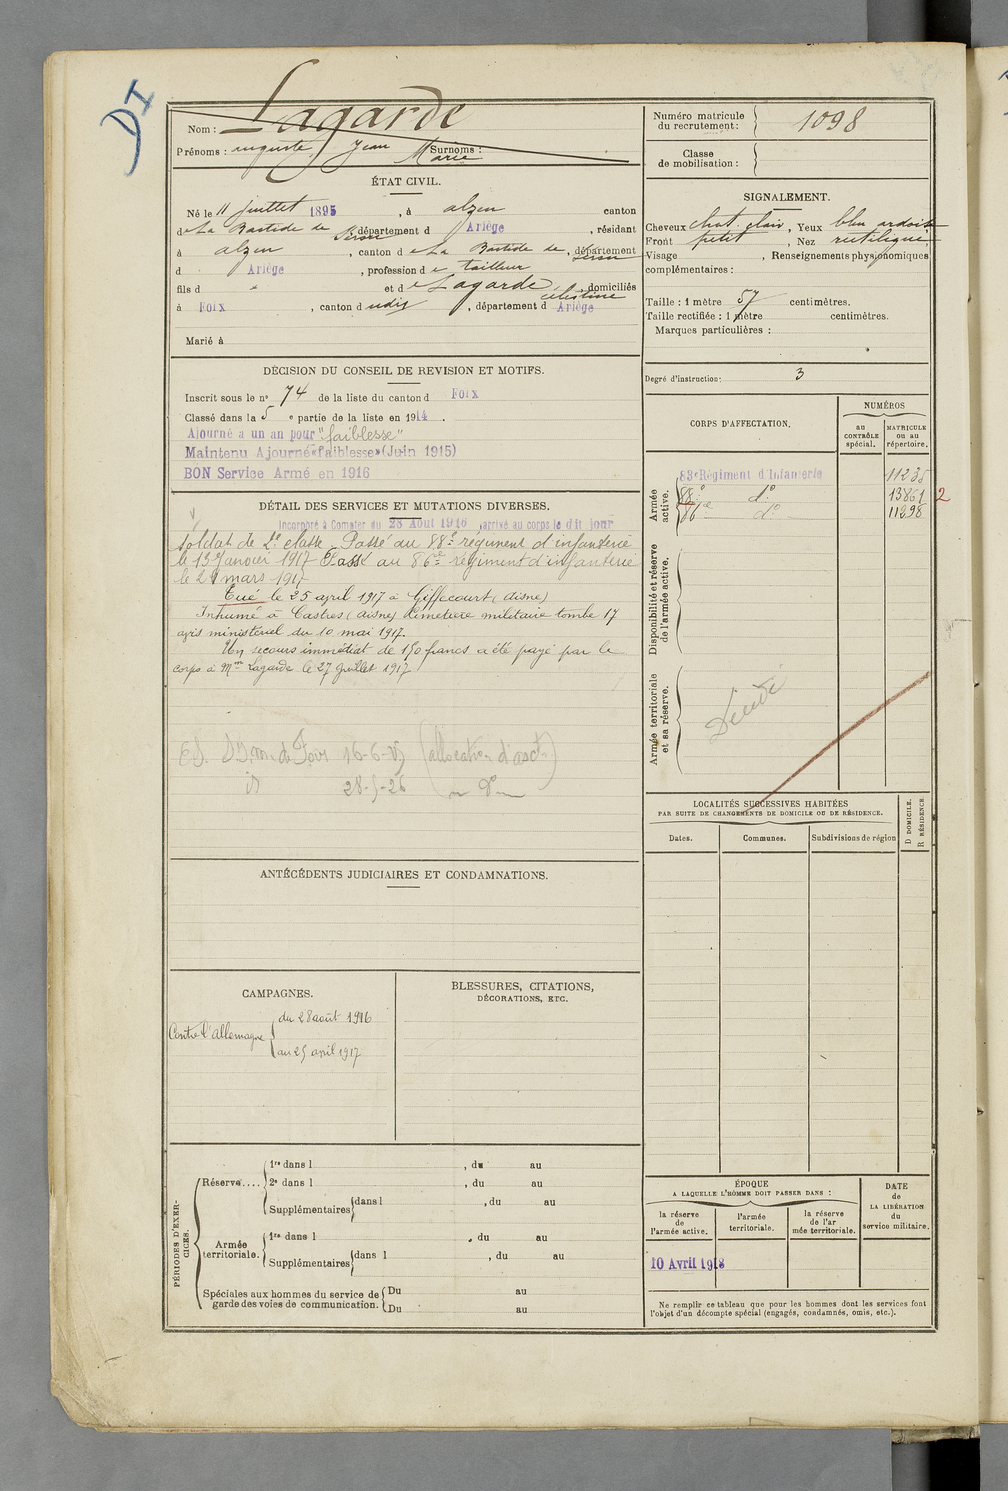 DI
Nom : Lagarde
Prénoms : auguste Jean Marie Surnoms :
Numéro matricule du recrutement : 1098
Classe de mobilisation :
ÉTAT CIVIL.
Né le 11 juillet 1895, à alzen canton
de La Bastide de Séron, département d Ariège, résidant
à alzen, canton de La Bastide de Séron, département
d Ariège, profession de tailleur
fils d " et de Lagarde célestine, domiciliés
à Foix, canton dudit, département d Ariège
Marié à
SIGNALEMENT.
Cheveux chat. clair, Yeux bleu ardoise
Front petit, Nez rectiligne
Visage , Renseignements physionomiques
complémentaires :
Taille : 1 mètre 57 centimètres.
Taille rectifiée : 1 mètre centimètres.
Marques particulières :
Degré d'instruction : 3
DÉCISION DU CONSEIL DE REVISION ET MOTIFS.
Inscrit sous le n° 74 de la liste du canton d Foix
Classé dans la 5 e partie de la liste en 1914.
Ajourné a un an pour "faiblesse"
Maintenu Ajourné «faiblesse» (Juin 1915)
BON Service Armé en 1916
DÉTAIL DES SERVICES ET MUTATIONS DIVERSES.
Incorporé à Compter du 28 Aout 1916, arrivé au corps le dit jour
Soldat de 2e classe. Passé au 88e régiment d'infanterie
le 13 Janvier 1917 Passé au 86e régiment d'infanterie
le 21 mars 1917
Tué le 25 avril 1917 à Giffecourt (aisne)
Inhumé à Castres (aisne) Cimetière militaire tombe 17
avis ministériel du 10 mai 1917.
Un secours immédiat de 150 francs a été payé par le
corps à Mme Lagarde le 27 Juillet 1917
(allocation d'asct)
28-5-26
CORPS D'AFFECTATION.
NUMÉROS
au CONTRÔLE spécial.
MATRICULE ou au répertoire.
Armée active.
83e Régiment d'Infanterie 11235
88e do 13861 2
86e do 11298
Disponibilité et réserve de l'armée active.
Armée territoriale et sa réserve.
LOCALITÉS SUCCESSIVES HABITÉES
PAR SUITE DE CHANGEMENTS DE DOMICILE OU DE RÉSIDENCE.
Dates.
Communes.
Subdivisions de région
D DOMICILE.
R RÉSIDENCE
ANTÉCÉDENTS JUDICIAIRES ET CONDAMNATIONS.
CAMPAGNES.
Contre l'allemagne
du 28 août 1916
au 25 avril 1917
BLESSURES, CITATIONS,
DÉCORATIONS, ETC.
PÉRIODES D'EXERCICES.
Réserve....
1re dans l , du au
2e dans l , du au
Supplémentaires dans l , du au
Armée territoriale.
1re dans l , du au
Supplémentaires dans l , du au
Spéciales aux hommes du service de garde des voies de communication.
Du au
Du au
ÉPOQUE
A LAQUELLE L'HOMME DOIT PASSER DANS :
la réserve de l'armée active.
l'armée territoriale.
la réserve de l'armée territoriale.
DATE de LA LIBÉRATION du service militaire.
10 Avril 1918
Ne remplir ce tableau que pour les hommes dont les services font
l'objet d'un décompte spécial (engagés, condamnés, omis, etc.).